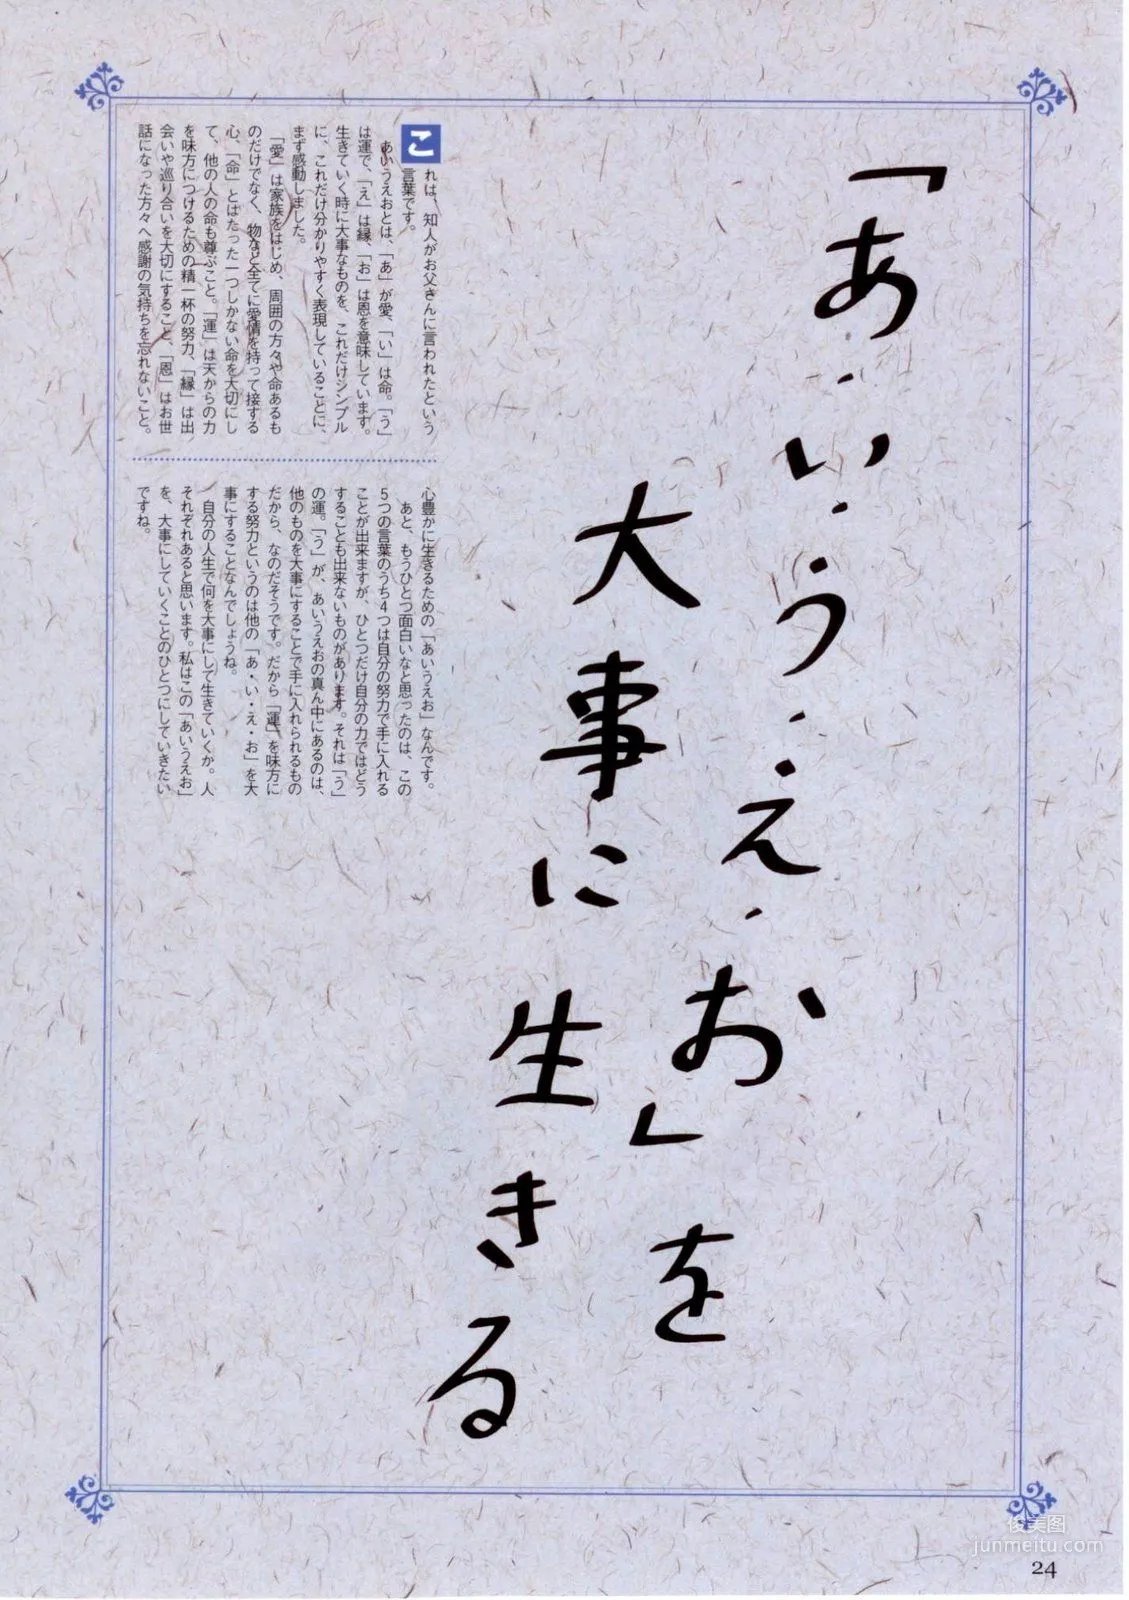 「あ・い・う・え・お」を
大事に生きる
これは、知人がお父さんに言われたという
言葉です。
あいうえおとは、「あ」が愛、「い」は命。「う」
は運で、「え」は縁、「お」は恩を意味しています。
生きていく時に大事なものを、これだけシンプル
に、これだけ分かりやすく表現していることに、
まず感動しました。
「愛」は家族をはじめ、周囲の方々や命あるも
のだけでなく、物など全てに愛情を持って接する
心、「命」とはたった一つしかない命を大切にし
て、他の人の命も尊ぶこと。「運」は天からの力
を味方につけるための精一杯の努力、「縁」は出
会いや巡り合いを大切にすること、「恩」はお世
話になった方々へ感謝の気持ちを忘れないこと。
心豊かに生きるための「あいうえお」なんです。
あと、もうひとつ面白いなと思ったのは、この
5つの言葉のうち4つは自分の努力で手に入れる
ことが出来ますが、ひとつだけ自分の力ではどう
することも出来ないものがあります。それは「う」
の運。「う」が、あいうえおの真ん中にあるのは、
他のものを大事にすることで手に入れられるもの
だから、なのだそうです。だから「運」を味方に
する努力というのは他の「あ・い・え・お」を大
事にすることなんでしょうね。
自分の人生で何を大事にして生きていくか。人
それぞれあると思います。私はこの「あいうえお」
を、大事にしていくことのひとつにしていきたい
ですね。
俊美图
junmeitu.com
24